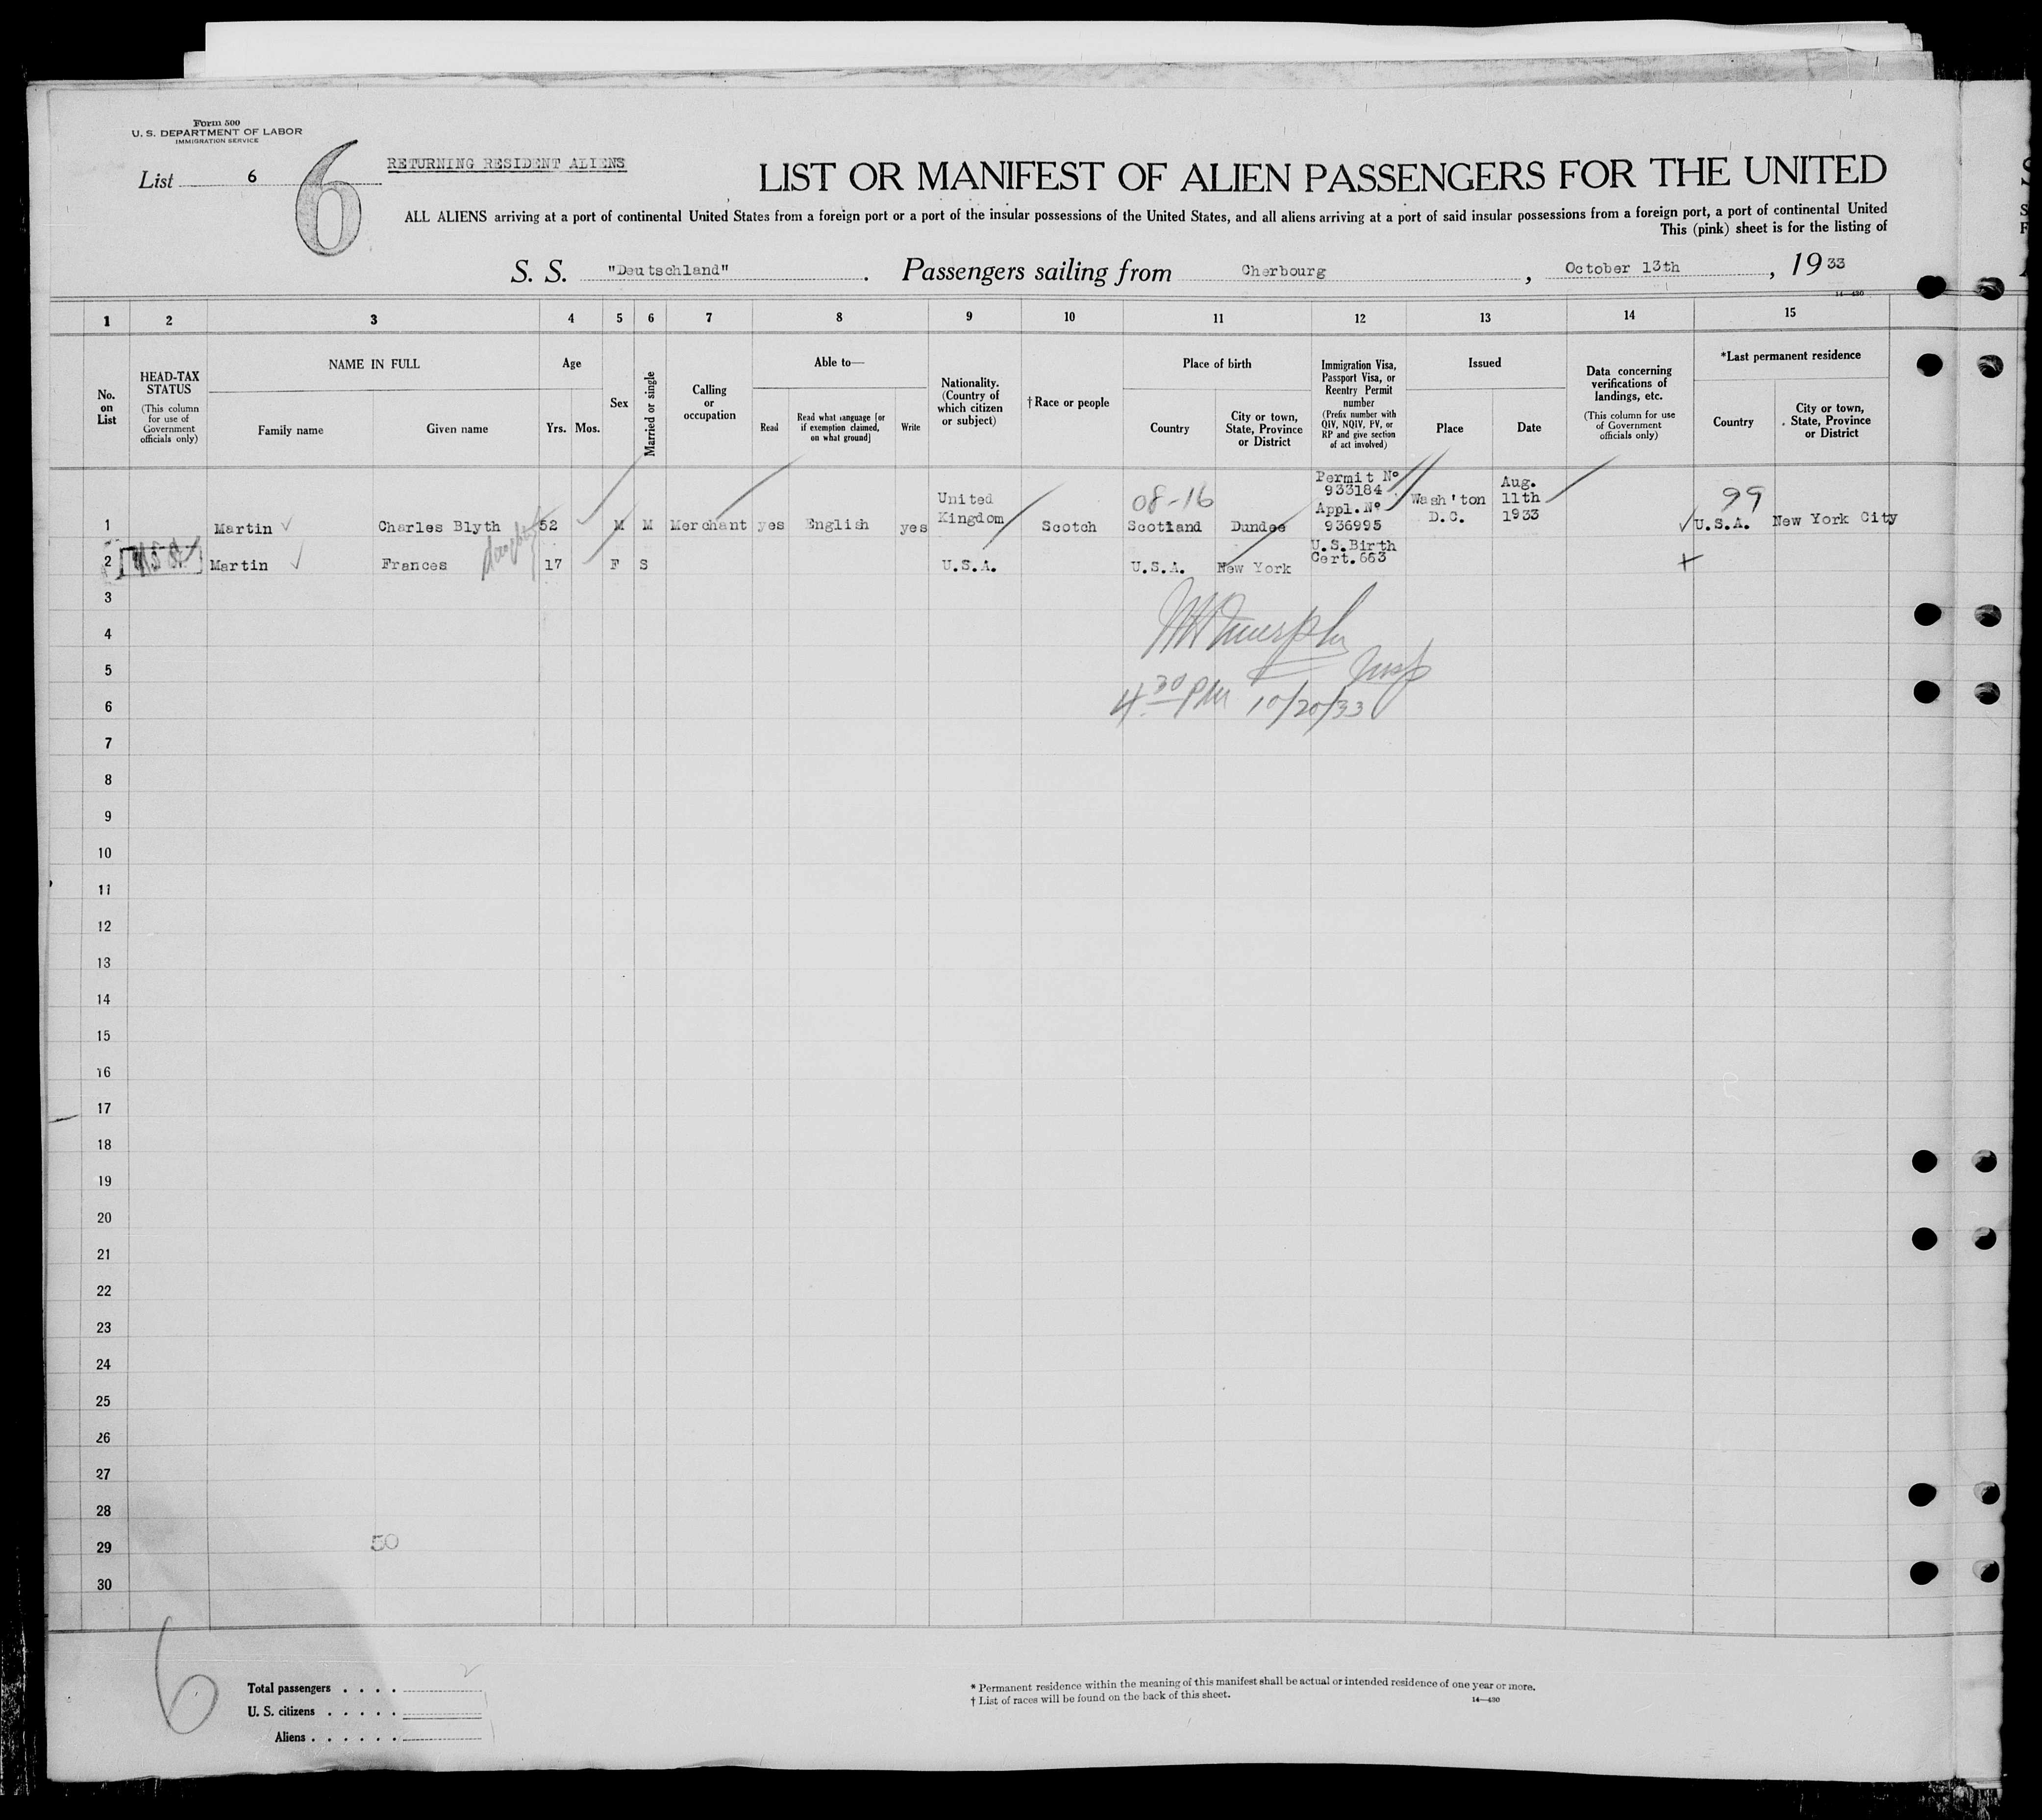 Form 500
U. S. DEPARTMENT OF LABOR
IMMIGRATION SERVICE
List 6
6
RETURNING RESIDENT ALIENS
LIST OR MANIFEST OF ALIEN PASSENGERS FOR THE UNITED
ALL ALIENS arriving at a port of continental United States from a foreign port or a port of the insular possessions of the United States, and all aliens arriving at a port of said insular possessions from a foreign port, a port of continental United
This (pink) sheet is for the listing of
S. S. "Deutschland". Passengers sailing from Cherbourg, October 13th, 1933
14—430
1 2 3 4 5 6 7 8 9 10 11 12 13 14 15
No. on List
HEAD-TAX STATUS
(This column for use of Government officials only)
NAME IN FULL
Family name
Given name
Age
Yrs. Mos.
Sex
Married or single
Calling or occupation
Able to—
Read
Read what language [or if exemption claimed, on what ground]
Write
Nationality. (Country of which citizen or subject)
†Race or people
Place of birth
Country
City or town, State, Province or District
Immigration Visa, Passport Visa, or Reentry Permit number
(Prefix number with QIV, NQIV, PV, or RP and give section of act involved)
Issued
Place
Date
Data concerning verifications of landings, etc.
(This column for use of Government officials only)
*Last permanent residence
Country
City or town, State, Province or District
1 Martin Charles Blyth 52 M M Merchant yes English yes United Kingdom Scotch 08-16 Scotland Dundee Permit Nº 933184 Appl. Nº 936995 Wash'ton D.C. Aug. 11th 1933 99 U.S.A. New York City
2 USA Martin Frances daughter 17 F S U.S.A. U.S.A. New York U.S.Birth Cert. 663
3
4
Murphy
5
Insp
6
4 30 PM 10/20/33
7
8
9
10
11
12
13
14
15
16
17
18
19
20
21
22
23
24
25
26
27
28
29
50
30
6
Total passengers . . . . 2
U. S. citizens . . . . .
Aliens . . . . . .
* Permanent residence within the meaning of this manifest shall be actual or intended residence of one year or more.
† List of races will be found on the back of this sheet.
14—430